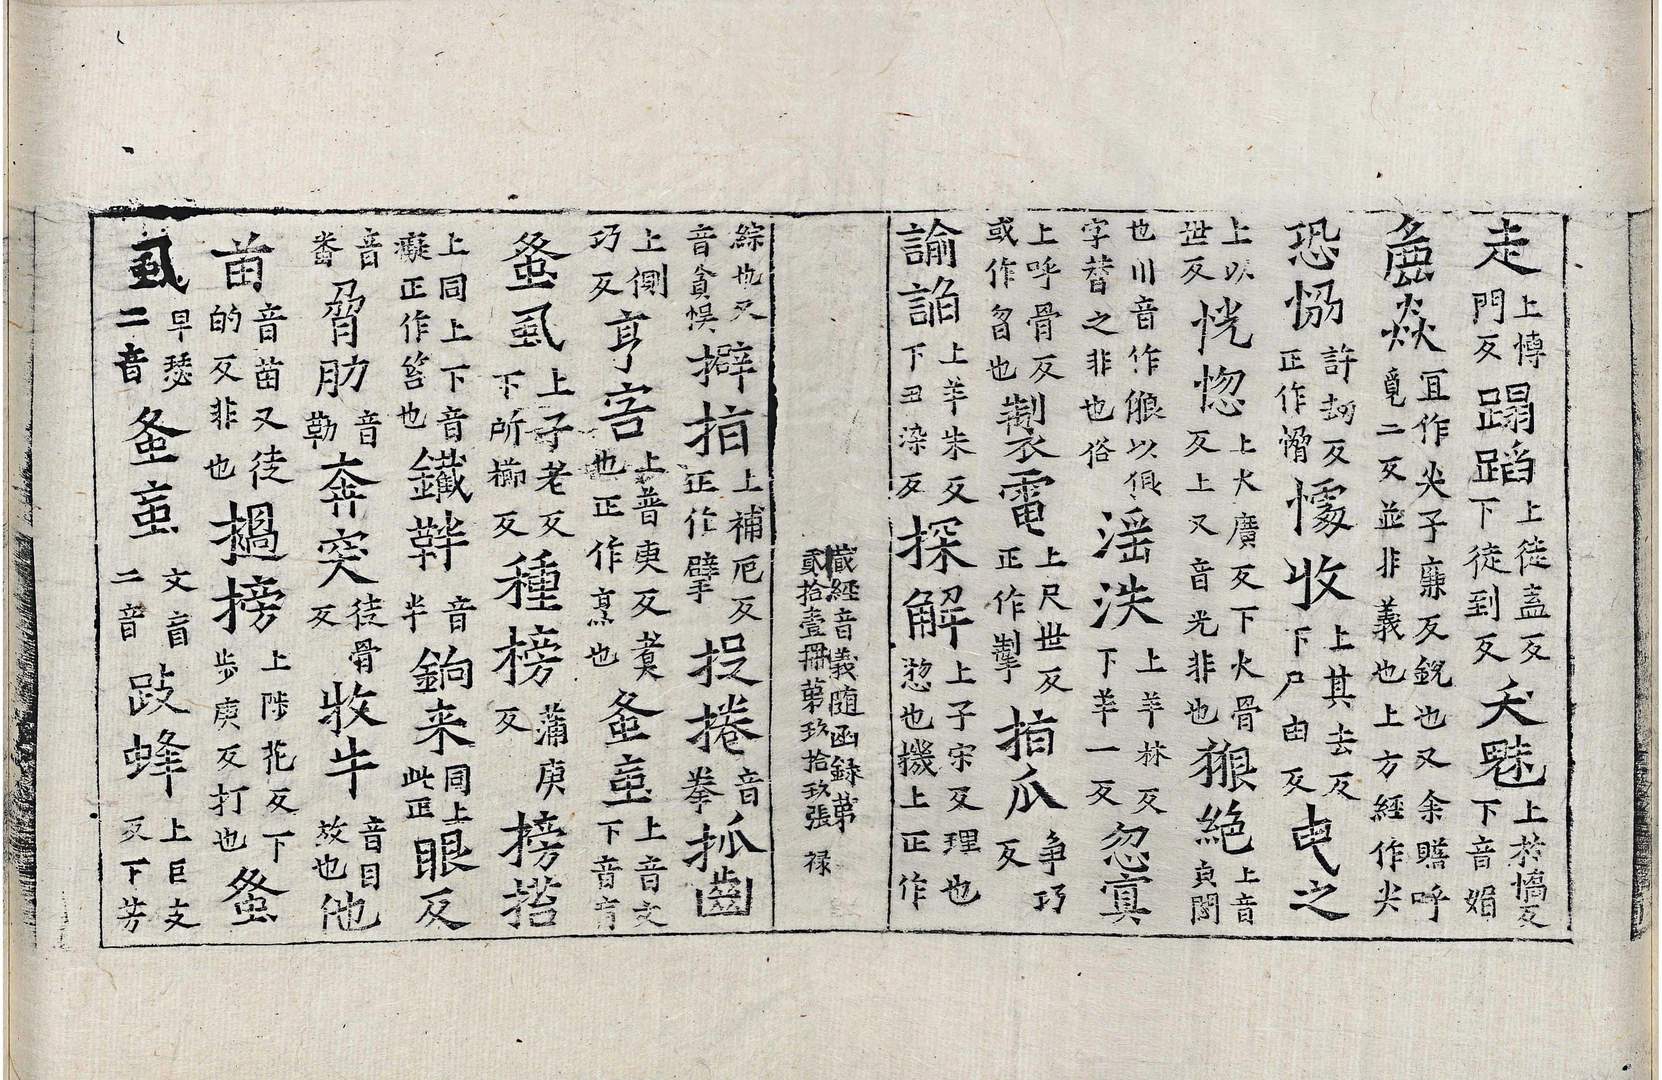 走上愽門反蹋蹈上徒盍反下徒到反夭魅上於憍反下音媚
麁焱冝作尖子廉反銳也又余贍呼覓二反並非義也上方經作尖
恐恊許刼反正作愶懅收上其去反下尸由反曳之
上以世反恍惚上火廣反下火骨反上又音光非也狠絶上音貞閩
也川音作㑯以俱字替之非也俗滛泆上羊林反下羊一反忽寘
上呼骨反或作曶也製電上尺世反正作掣掐爪争巧反
諭諂上羊朱反下丑染反探解上子宋反理也愗也機上正作
藏經音義随函録第
貳拾壹冊第玖拾玖張 禄
綜也又音貪悞擗掐上補厄反正作擘捉捲音拳抓齒
上側巧反亨害上普庚反煑也正作烹也蚤䖟上音文下音肓
蚤虱上子老反下所櫛反種榜蒲庚反榜笞
上同上下音癡正作笞也鐵靽音半鉤来同上此正眼反
音畨脅肋音勒奔突徒骨反牧牛音目放也他
苗音苗又徒的反非也撾榜上陟花反下步庚反打也蚤
虱早瑟二音蚤䖟文肓二音跂蜂上巨支反下芳